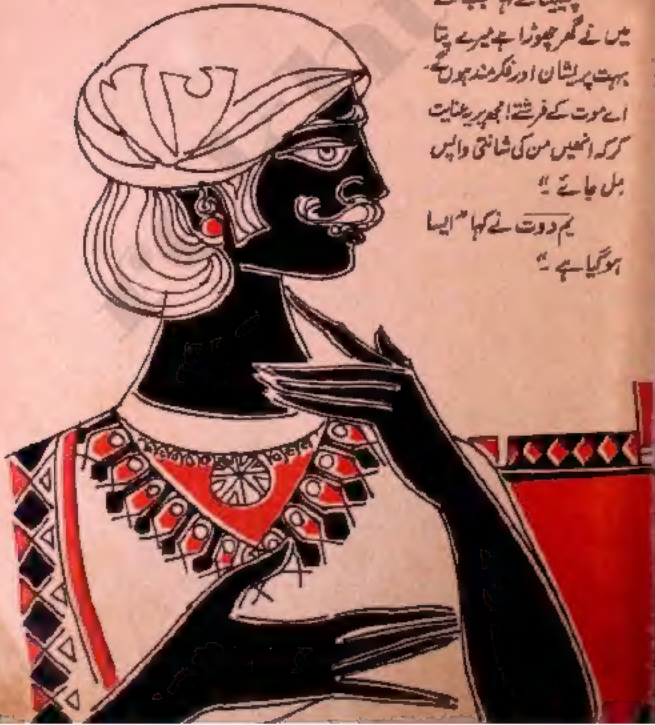 میں نے گھر چھوڑا ہے میرے پتا
بہت پریشان اور فکرمند ہوں گے۔
اے موت کے فرشتے! مجھ پر یہ عنایت
کر کہ انھیں من کی شانتی واپس
مل جائے۔"
یم دوت نے کہا "ایسا
ہوگیا ہے۔"